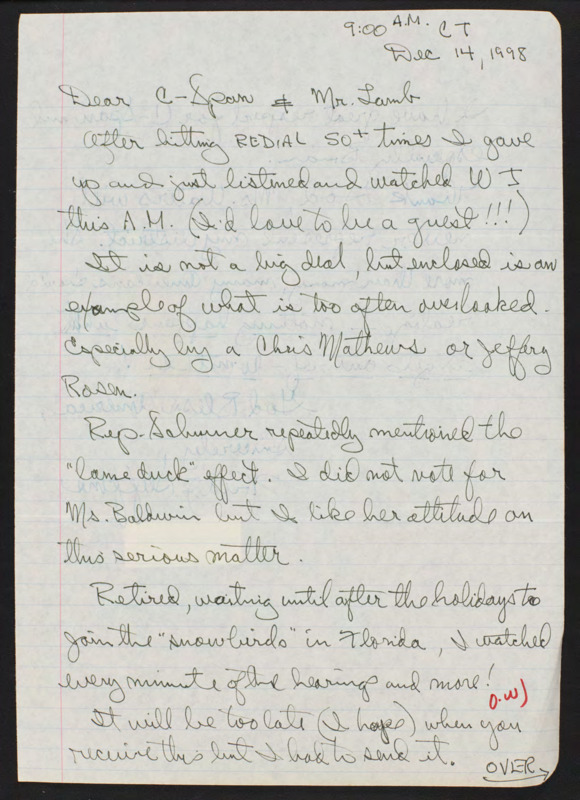 9:00 A.M. CT
Dec 14, 1998
Dear C-Span & Mr. Lamb
After hitting REDIAL 50+ times I gave
up and just listined and watched WJ
this A.M. (I'd love to be a guest!!!)
It is not a big deal, but enclosed is an
example of what is too often overlooked.
Especially by a Chris Mathews or Jeffery
Rosen.
Rep. Schumer repeatedly mentioned the
"lame duck" effect. I did not vote for
Ms. Baldwin but I like her attitude on
this serious matter.
Retired, waiting until after the holidays to
join the "snowbirds" in Florida, I watched
every minute of the hearings and more!
It will be too late (I hope) when you
receive this but I had to send it.
OVER